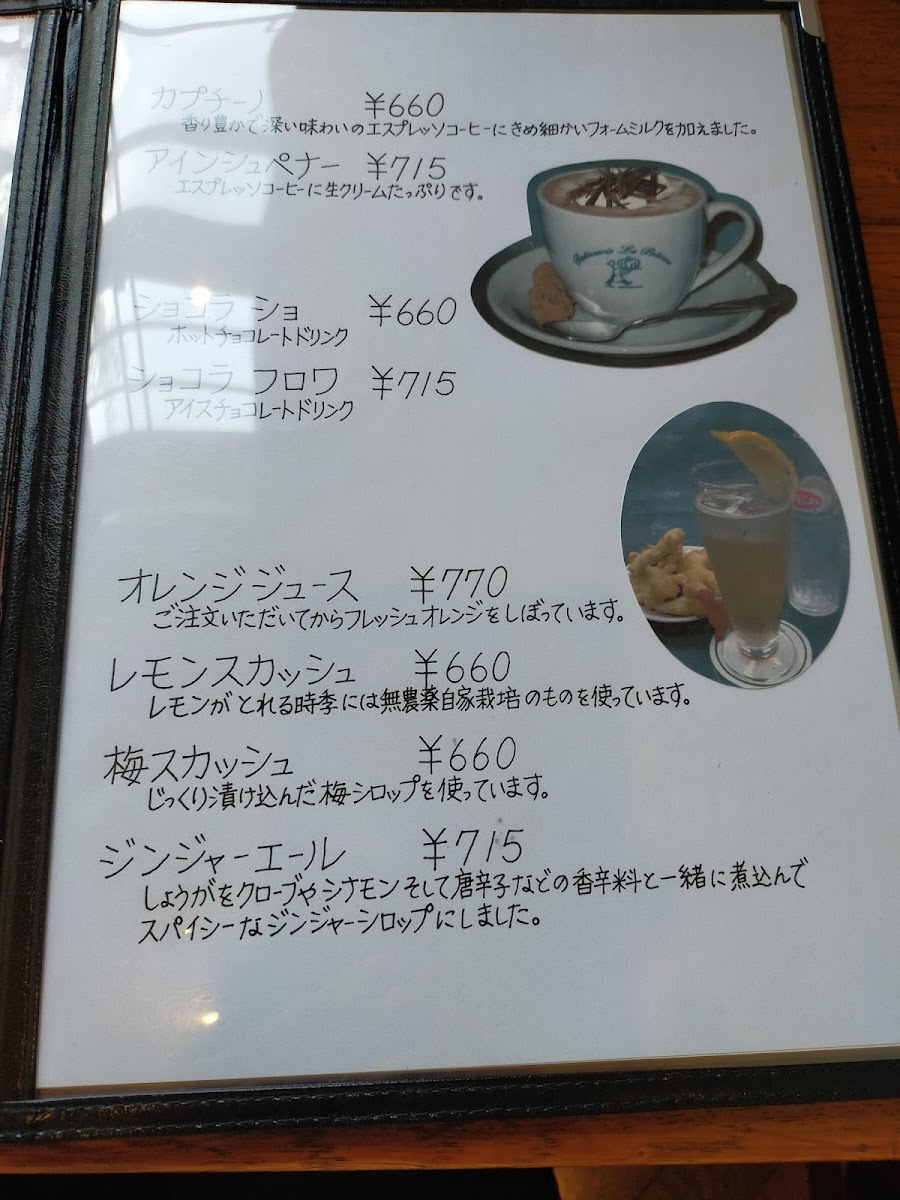 カプチーノ ¥660
香り豊かで深い味わいのエスプレッソコーヒーにきめ細かいフォームミルクを加えました。
アインシュペナー ¥715
エスプレッソコーヒーに生クリームたっぷりです。
ショコラ ショ ¥660
ホットチョコレートドリンク
ショコラ フロワ ¥715
アイスチョコレートドリンク
オレンジジュース ¥770
ご注文いただいてからフレッシュオレンジをしぼっています。
レモンスカッシュ ¥660
レモンがとれる時季には無農薬自家栽培のものを使っています。
梅スカッシュ ¥660
じっくり漬け込んだ梅シロップを使っています。
ジンジャーエール ¥715
しょうがをクローブやシナモンそして唐辛子などの香辛料と一緒に煮込んで
スパイシーなジンジャーシロップにしました。